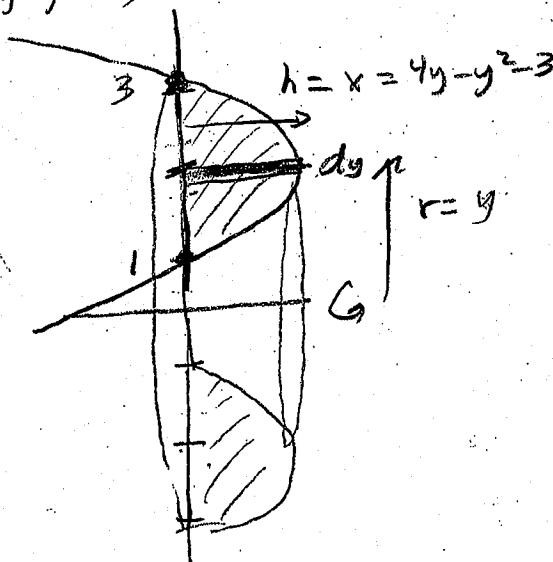 3
h = x = 4y-y²-3
dy
r = y
1